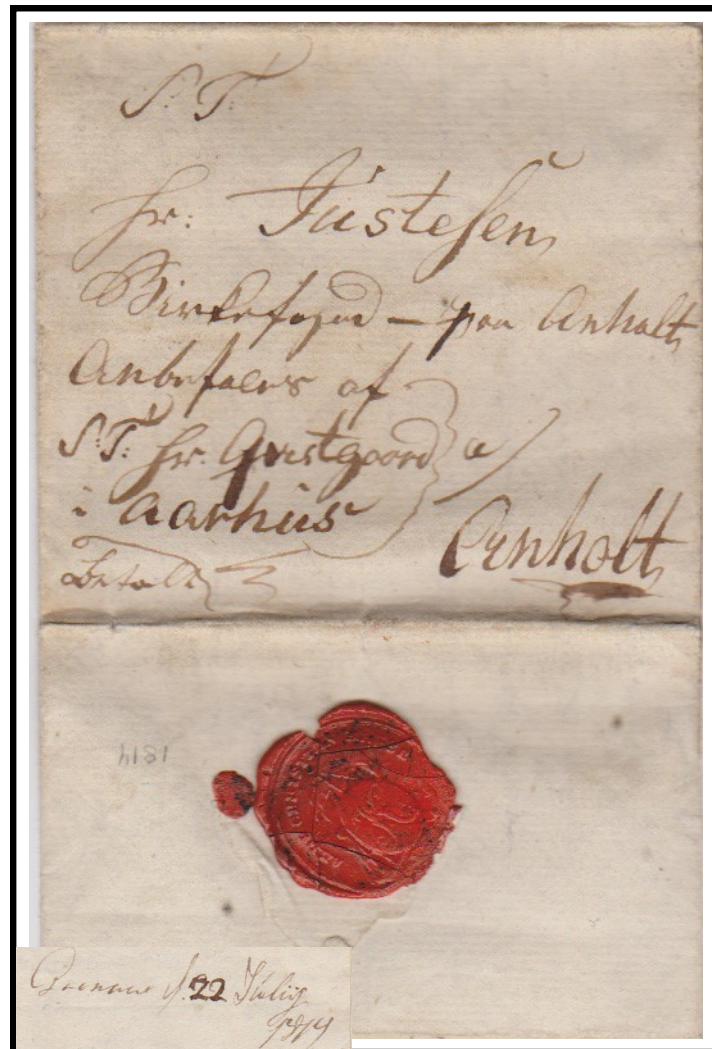 S. T.
Hr: Justesen
Birkefoged — paa Anholt
Anbefales af
S. T. Hr: Qvistgaard a
i Aarhus
Anholt
Betalt
1814
d. 22 Julij
1814